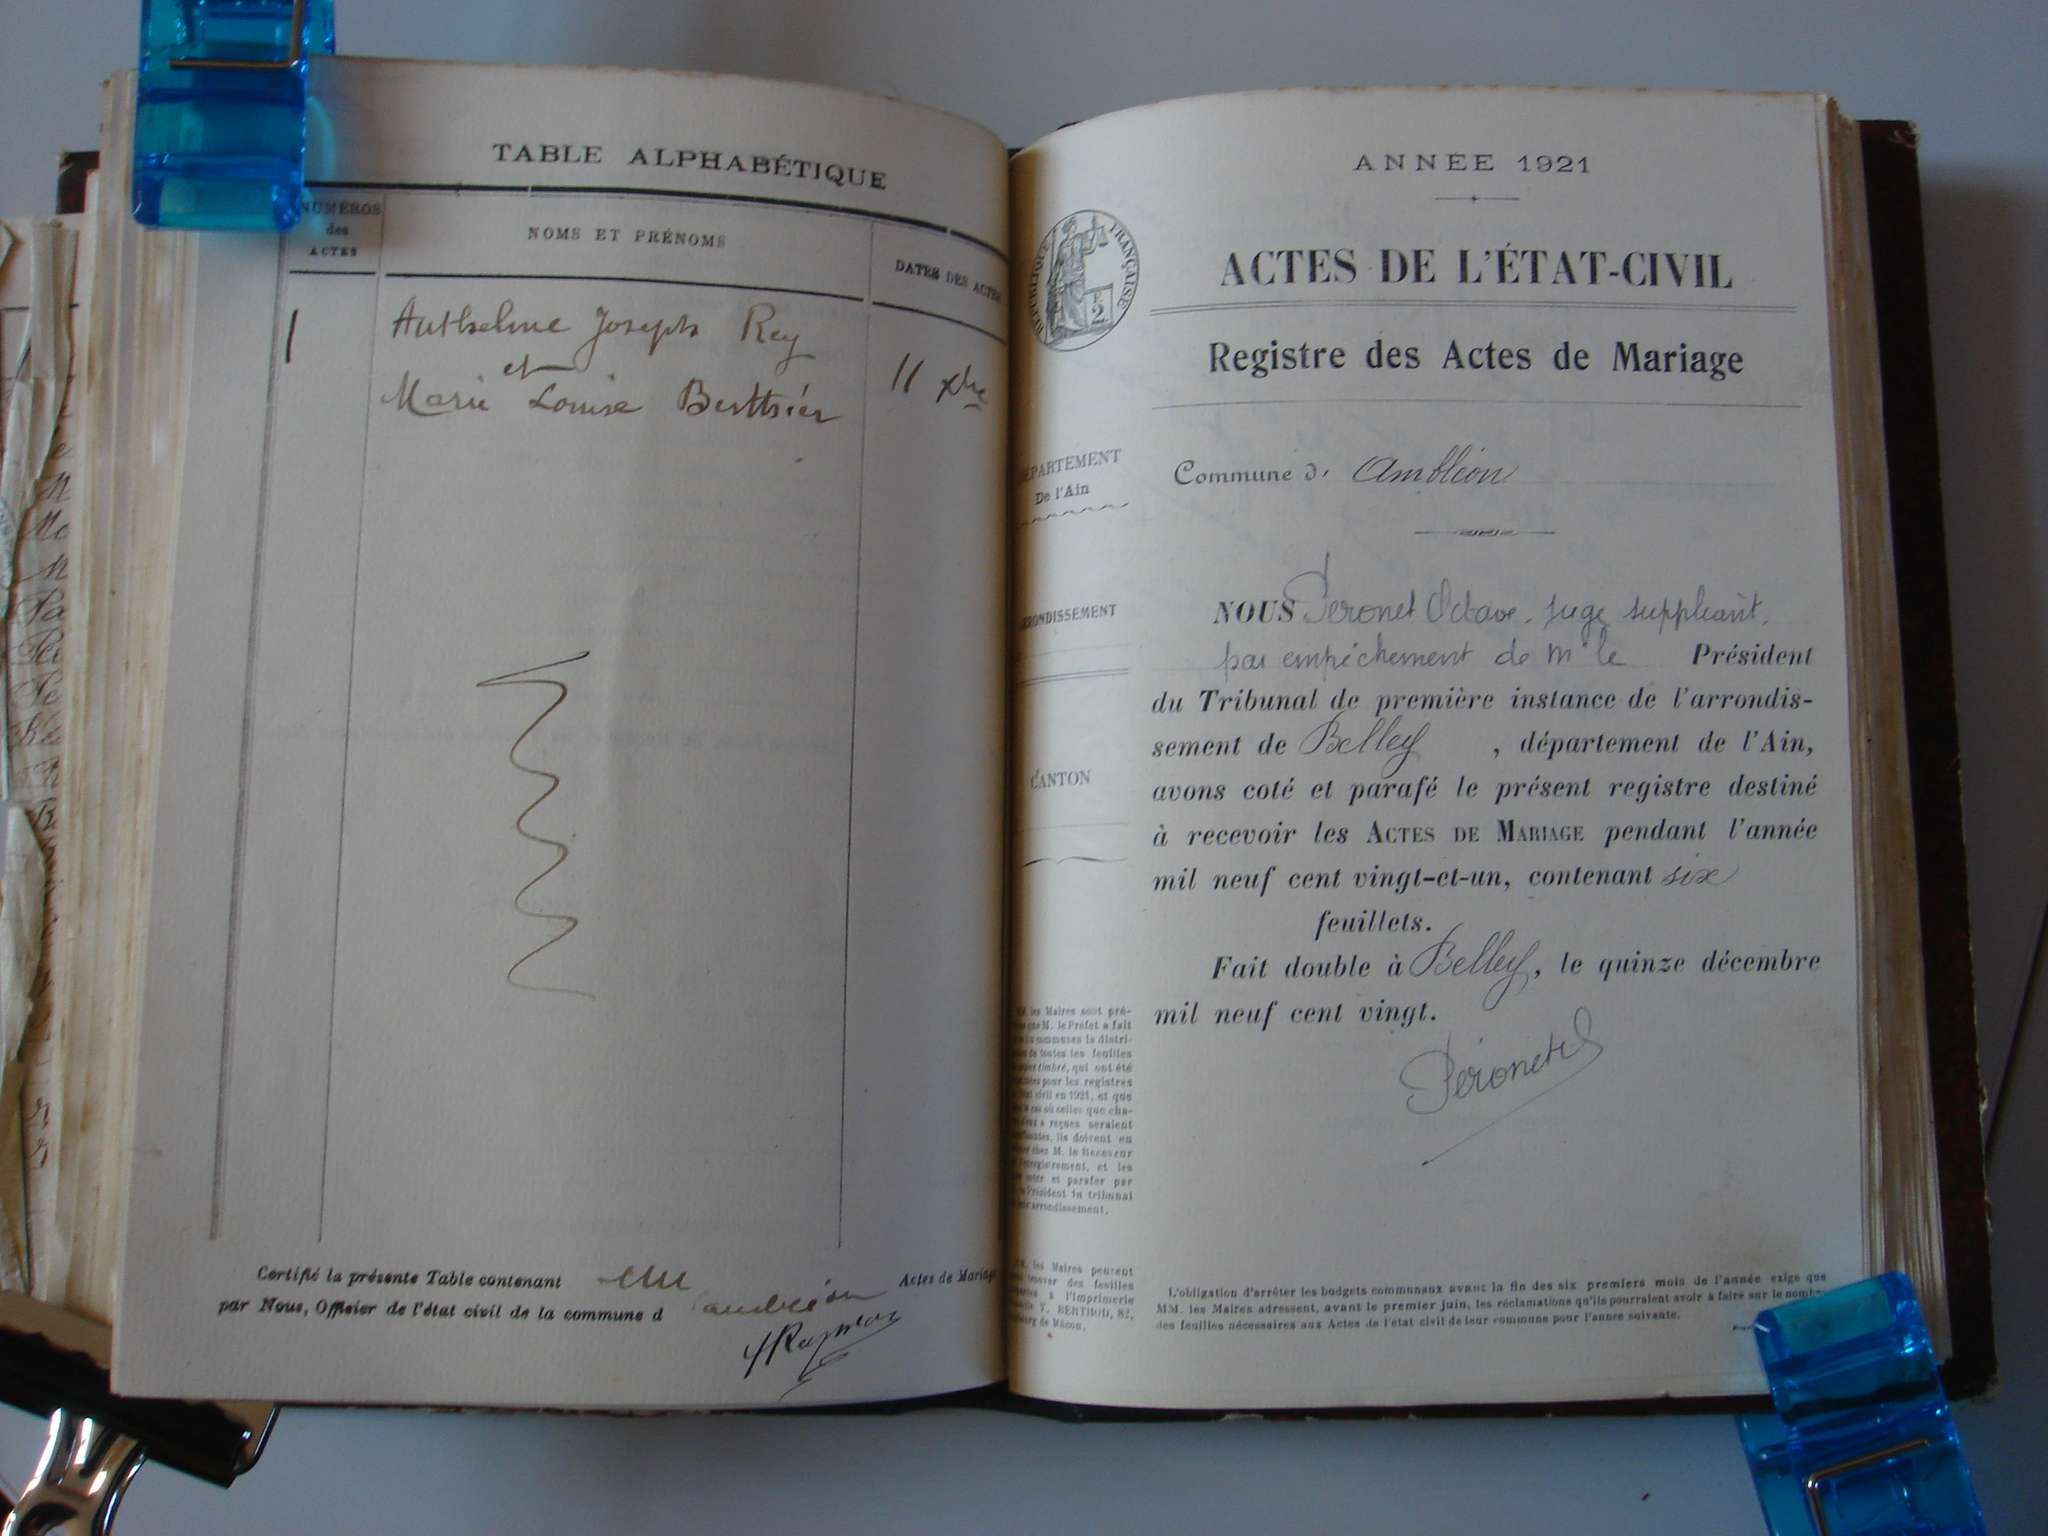 TABLE ALPHABÉTIQUE
NUMÉROS
des
ACTES
NOMS ET PRÉNOMS
DATES DES ACTES
1
Anthelme Joseph Rey
et
Marie Louise Berthier
11 xbre
Certifié la présente Table contenant un Actes de Mariage
par Nous, Officier de l'état civil de la commune d'ambléon
ANNÉE 1921
RÉPUBLIQUE FRANÇAISE
2
ACTES DE L'ÉTAT-CIVIL
Registre des Actes de Mariage
DÉPARTEMENT
De l'Ain
ARRONDISSEMENT
CANTON
Commune d' Ambléon
NOUS Peronet Octave, juge suppléant,
par empêchement de Mr le Président
du Tribunal de première instance de l'arrondis-
sement de Belley, département de l'Ain,
avons coté et parafé le présent registre destiné
à recevoir les ACTES DE MARIAGE pendant l'année
mil neuf cent vingt-et-un, contenant six
feuillets.
Fait double à Belley, le quinze décembre
mil neuf cent vingt.
Péronet
MM. les Maires sont pré-
que M. le Préfet a fait
communes la distri-
de toutes les feuilles
timbré, qui ont été
pour les registres
civil en 1921, et que
le cas où celles que cha-
a reçues seraient
ils doivent en
chez M. le Receveur
l'enregistrement, et les
coter et parafer par
Président du tribunal
arrondissement.
MM. les Maires peuvent
trouver des feuilles
à l'Imprimerie
V. BERTHOD, 82,
de Mâcon.
L'obligation d'arrêter les budgets communaux avant la fin des six premiers mois de l'année exige que
MM. les Maires adressent, avant le premier juin, les réclamations qu'ils pourraient avoir à faire sur le nombre
des feuilles nécessaires aux Actes de l'état civil de leur commune pour l'année suivante.